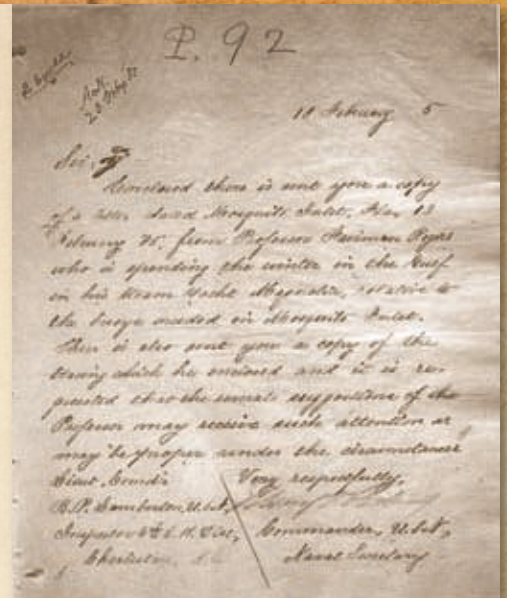 P. 92
18 February 5
Sir,
there is sent you a copy
of a letter dated Mosquito Inlet, Fla. 13
February 85, from Professor Fairman Rogers
who is spending the winter in the Gulf
in his steam yacht Magnolia, relative to
the buoys needed in Mosquito Inlet.
There is also sent you a copy of the
tracing which he enclosed and it is re-
quested that the suggestions of the
Professor may receive such attention as
may be proper under the circumstances
Very respectfully,
U.S.N.
Inspector 6th L. H. Dist, Commander, U.S.N,
Charleston, Naval Secretary